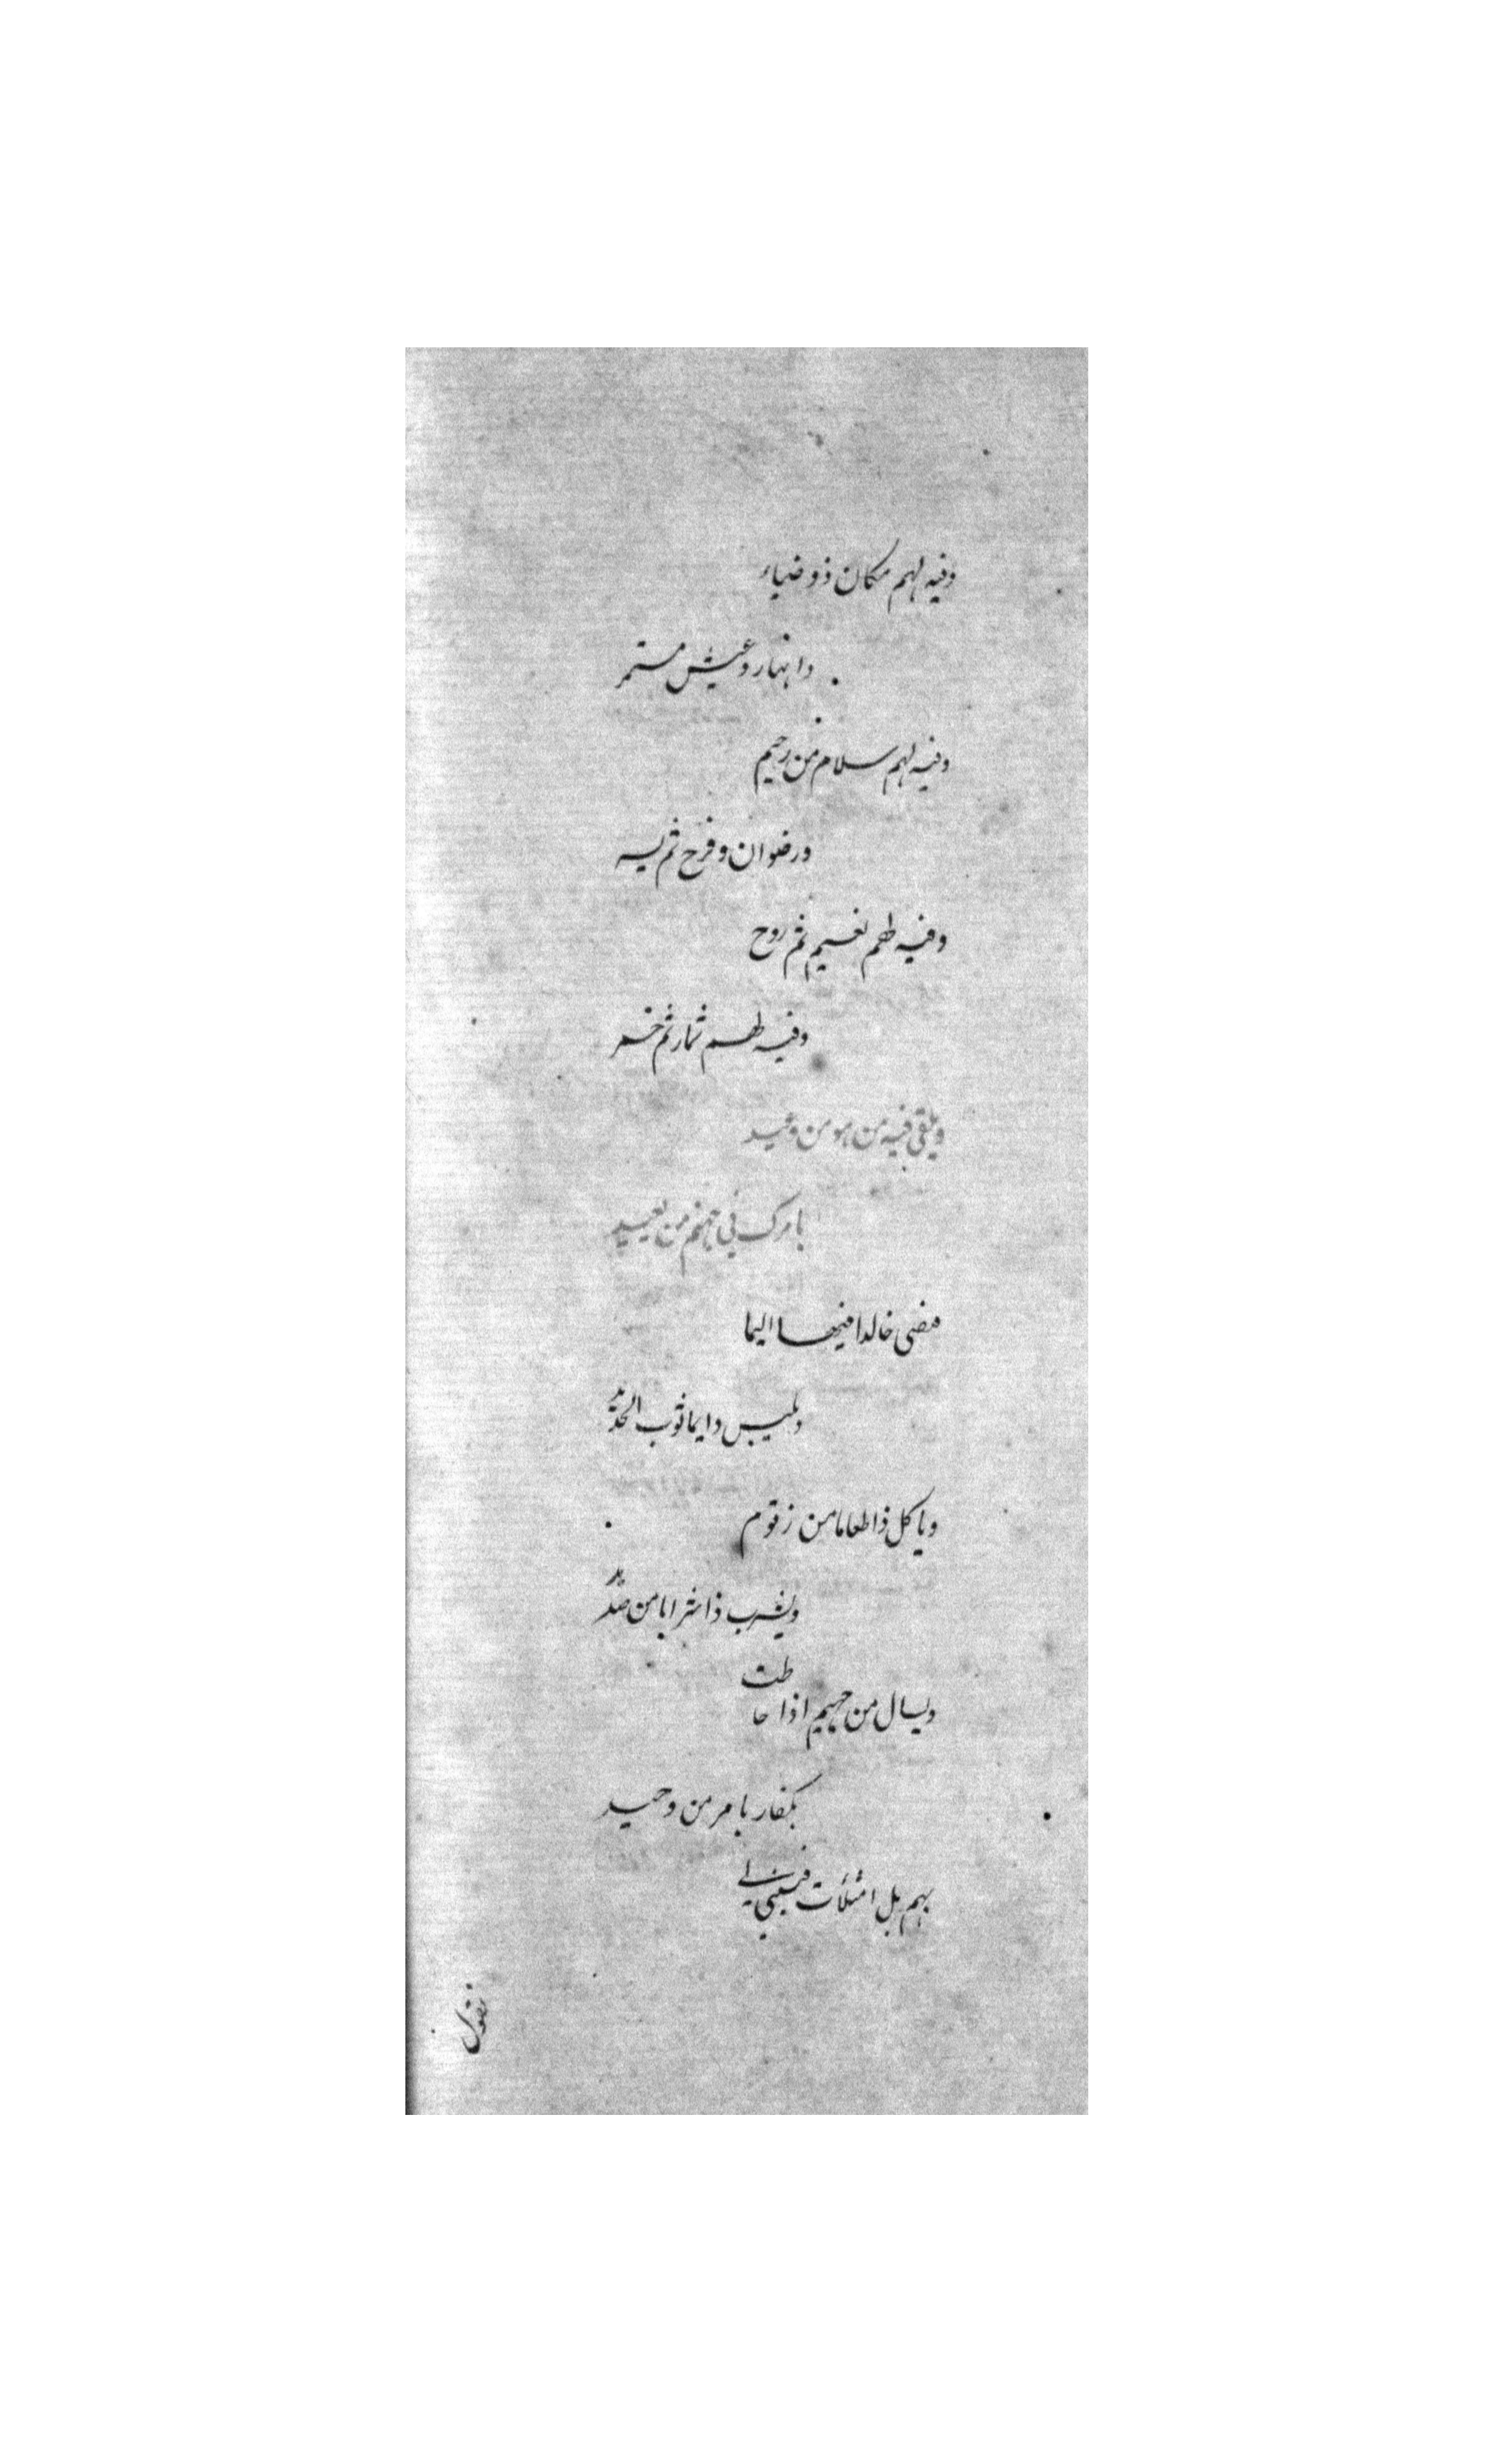 وفيه لهم مكان ذو ضياء
وانهار وعيش مستمر
وفيه لهم سلام من رحيم
ورضوان وفرح ثم يسر
وفيه لهم نعيم ثم روح
وفيه لهم ثمار ثم خمر
ويلقى فيه من هو من وعيد
بامرك في جهنم من بعيد
خالدا فيها اليما
ويلبس دايما ثوب الحديد
وياكل ذا طعاما من زقوم
ويشرب ذا شرابا من صديد
ويسال من جهيم اذا حاطت
بكفار بامر من وحيد
بهم بل امتلأت
تقول